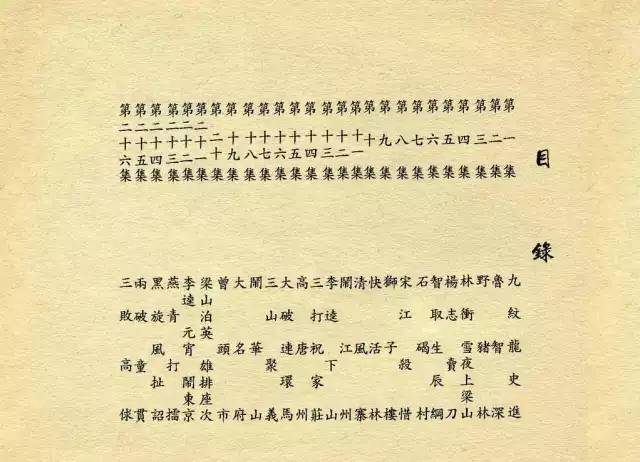 目錄
第一集 九紋龍史進
第二集 魯智深
第三集 野豬林
第四集 林衝雪夜上梁山
第五集 楊志賣刀
第六集 智取生辰綱
第七集 石碣村
第八集 宋江殺惜
第九集 獅子樓
第十集 快活林
第十一集 清風寨
第十二集 鬧江州
第十三集 李逵下山
第十四集 三打祝家莊
第十五集 高唐州
第十六集 大破連環馬
第十七集 三山聚義
第十八集 鬧華山
第十九集 大名府
第二十集 曾頭市
第二十一集 梁山泊英雄排座次
第二十二集 李逵元宵鬧東京
第二十三集 燕青打擂
第二十四集 黑旋風扯詔
第二十五集 兩破童貫
第二十六集 三敗高俅